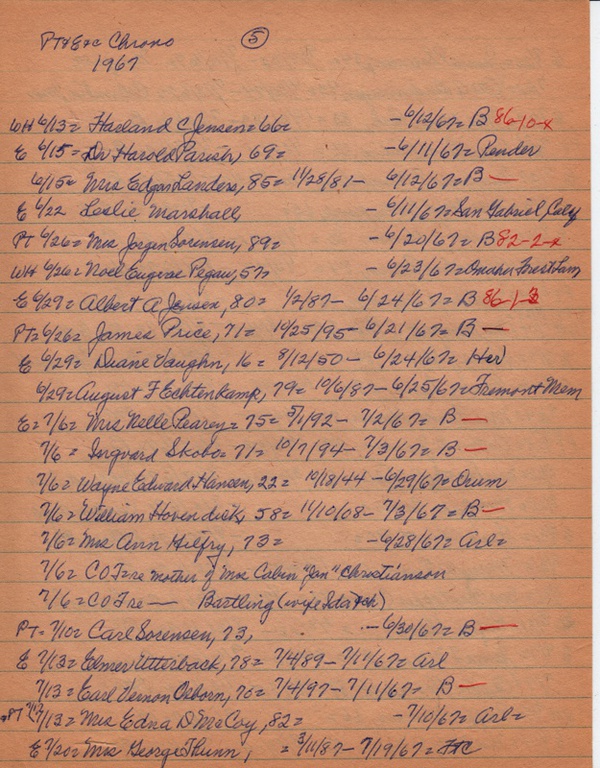 PT & Etc Chrono ⑤
1967
WH 6/13= Harland C Jensen= 66= -6/12/67= B 86-10-x
E 6/15= Dr Harold Parish, 69= -6/11/67= Pender
6/15= Mrs Edgar Landers, 85= 11/28/81- 6/12/67= B —
E 6/22 Leslie Marshall, -6/11/67= San Gabriel, Calif
PT 6/26= Mrs Jorgen Sorensen, 89= -6/20/67= B 82-2-x
WH 6/26= Noel Eugene Pegau, 57= -6/23/67= Omaha Forest Lawn
E 6/29= Albert A Jensen, 80= 1/2/87- 6/24/67= B 86-1-3
PT= 6/26= James Price, 71= 10/25/95- 6/21/67= B —
E 6/29= Duane Vaughn, 16= 8/12/50- 6/24/67= Her
6/29= August F Echtenkamp, 79= 10/6/87- 6/25/67= Fremont Mem
E= 7/6= Mrs Nelle Pearey= 75= 5/1/92- 7/2/67= B —
7/6= Ingvard Skobo= 71= 10/7/94- 7/3/67= B —
7/6= Wayne Edward Hansen, 22= 10/18/44-6/29/67= Orum
7/6= William Hovendick, 58= 11/10/08- 7/3/67= B —
7/6= Mrs Ann Gilfry, 73= -6/28/67= Arl=
7/6= COFre mother of Mrs Calvin "Jan" Christianson
7/6= COFre — Bartling (wife Ida)
PT= 7/10= Carl Sorensen, 73, -6/30/67= B —
E 7/13= Elmer Utterback, 78= 7/4/89- 7/11/67= Arl
7/13= Earl Vernon Osborn, 70= 7/4/97- 7/11/67= B —
PT 7/13= Mrs Edna D McCoy, 82= -7/10/67= Arl=
E 7/20= Mrs George Thunn, = 3/11/87- 7/19/67= FtC